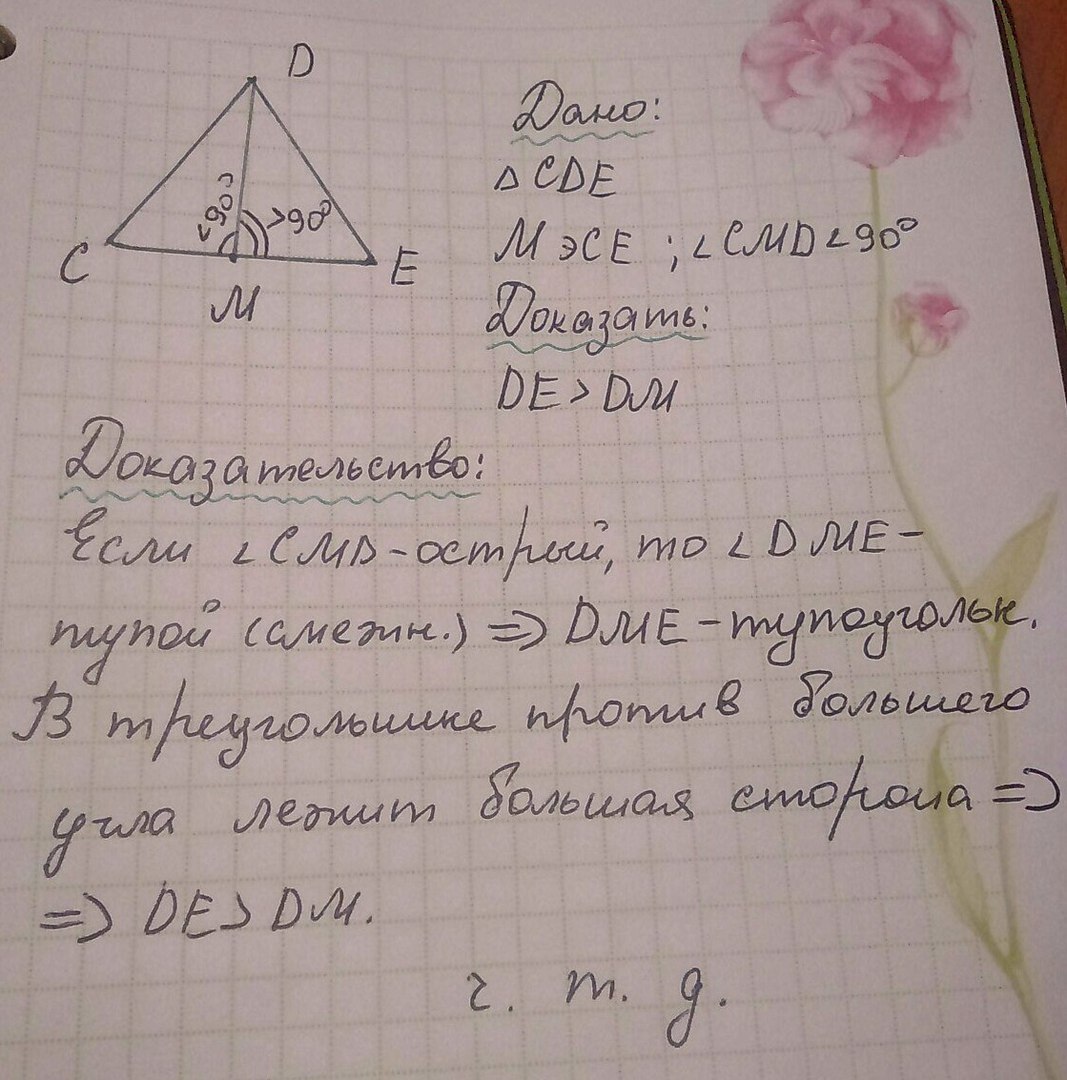 D
<90°
>90°
C
E
M
Дано:
△ CDE
M э CE ; ∠CMD < 90°
Доказать:
DE > DM
Доказательство:
Если ∠CMD - острый, то ∠DME -
тупой (смежн.) => DME - тупоугольн.
В треугольнике против большего
угла лежит большая сторона =>
=> DE > DM.
ч. т. д.